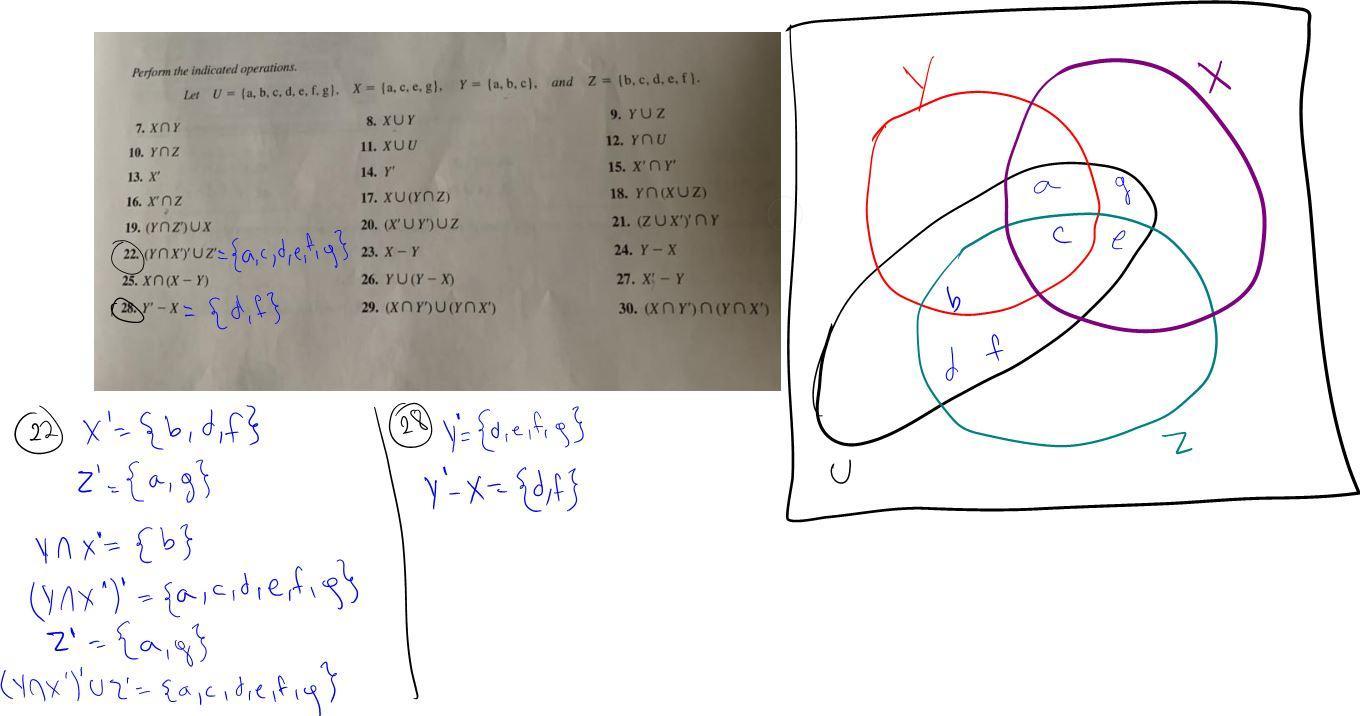 Perform the indicated operations.
Let U = {a, b, c, d, e, f, g}, X = {a, c, e, g}, Y = {a, b, c}, and Z = {b, c, d, e, f}.
7. X∩Y
8. X∪Y
9. Y∪Z
10. Y∩Z
11. X∪U
12. Y∩U
13. X'
14. Y'
15. X'∩Y'
16. X'∩Z
17. X∪(Y∩Z)
18. Y∩(X∪Z)
19. (Y∩Z')∪X
20. (X'∪Y')∪Z
21. (Z∪X')'∩Y
22. (Y∩X')'∪Z' = {a,c,d,e,f,g}
23. X − Y
24. Y − X
25. X∩(X − Y)
26. Y∪(Y − X)
27. X' − Y
28. Y' − X = {d,f}
29. (X∩Y')∪(Y∩X')
30. (X∩Y')∩(Y∩X')
22 X' = {b, d, f}
Z' = {a, g}
Y∩X' = {b}
(Y∩X')' = {a, c, d, e, f, g}
Z' = {a, g}
(Y∩X')'∪Z' = {a, c, d, e, f, g}
28 Y' = {d, e, f, g}
Y' − X = {d, f}
Y
X
a
g
c
e
b
d f
Z
U